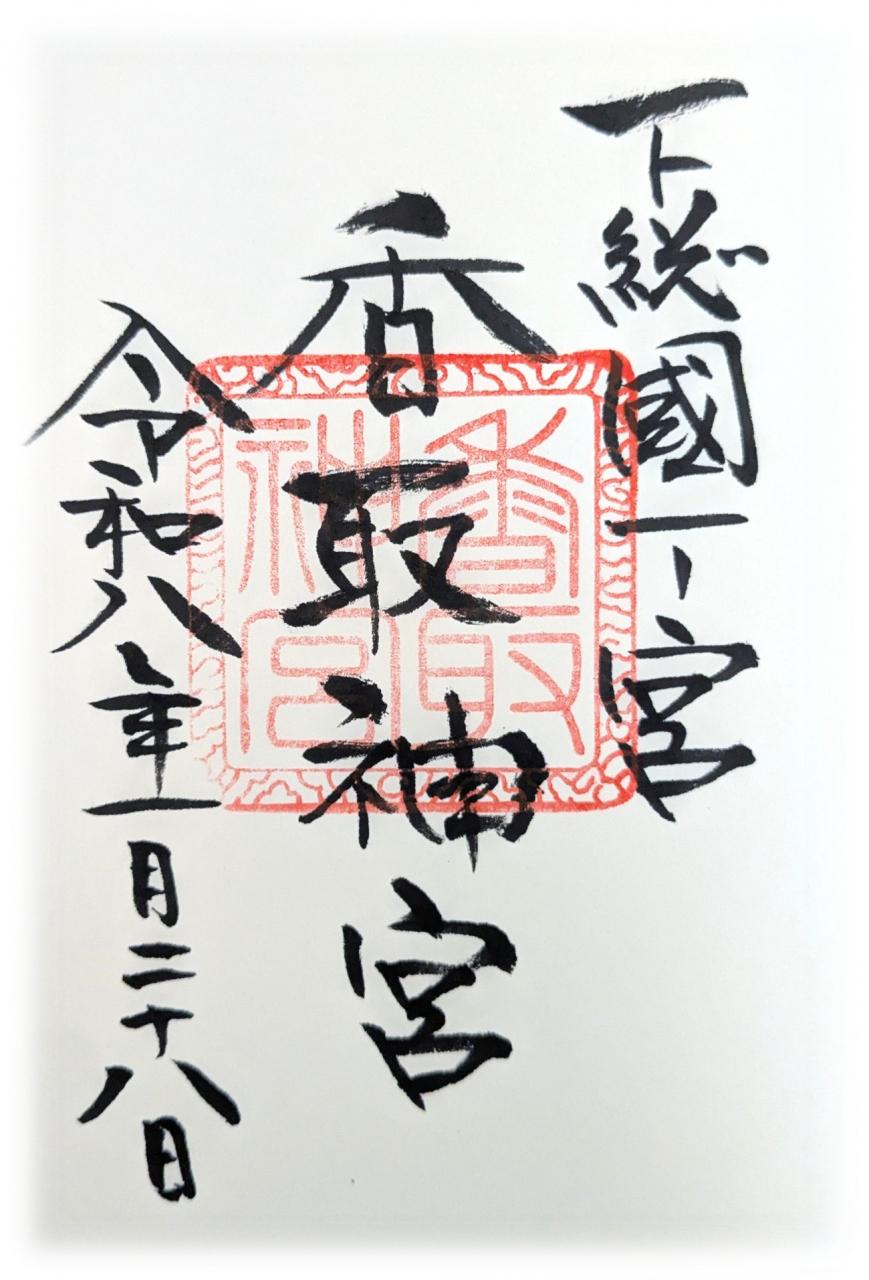 下総國一ノ宮
香取神宮
令和八年一月二十八日
香取
神宮